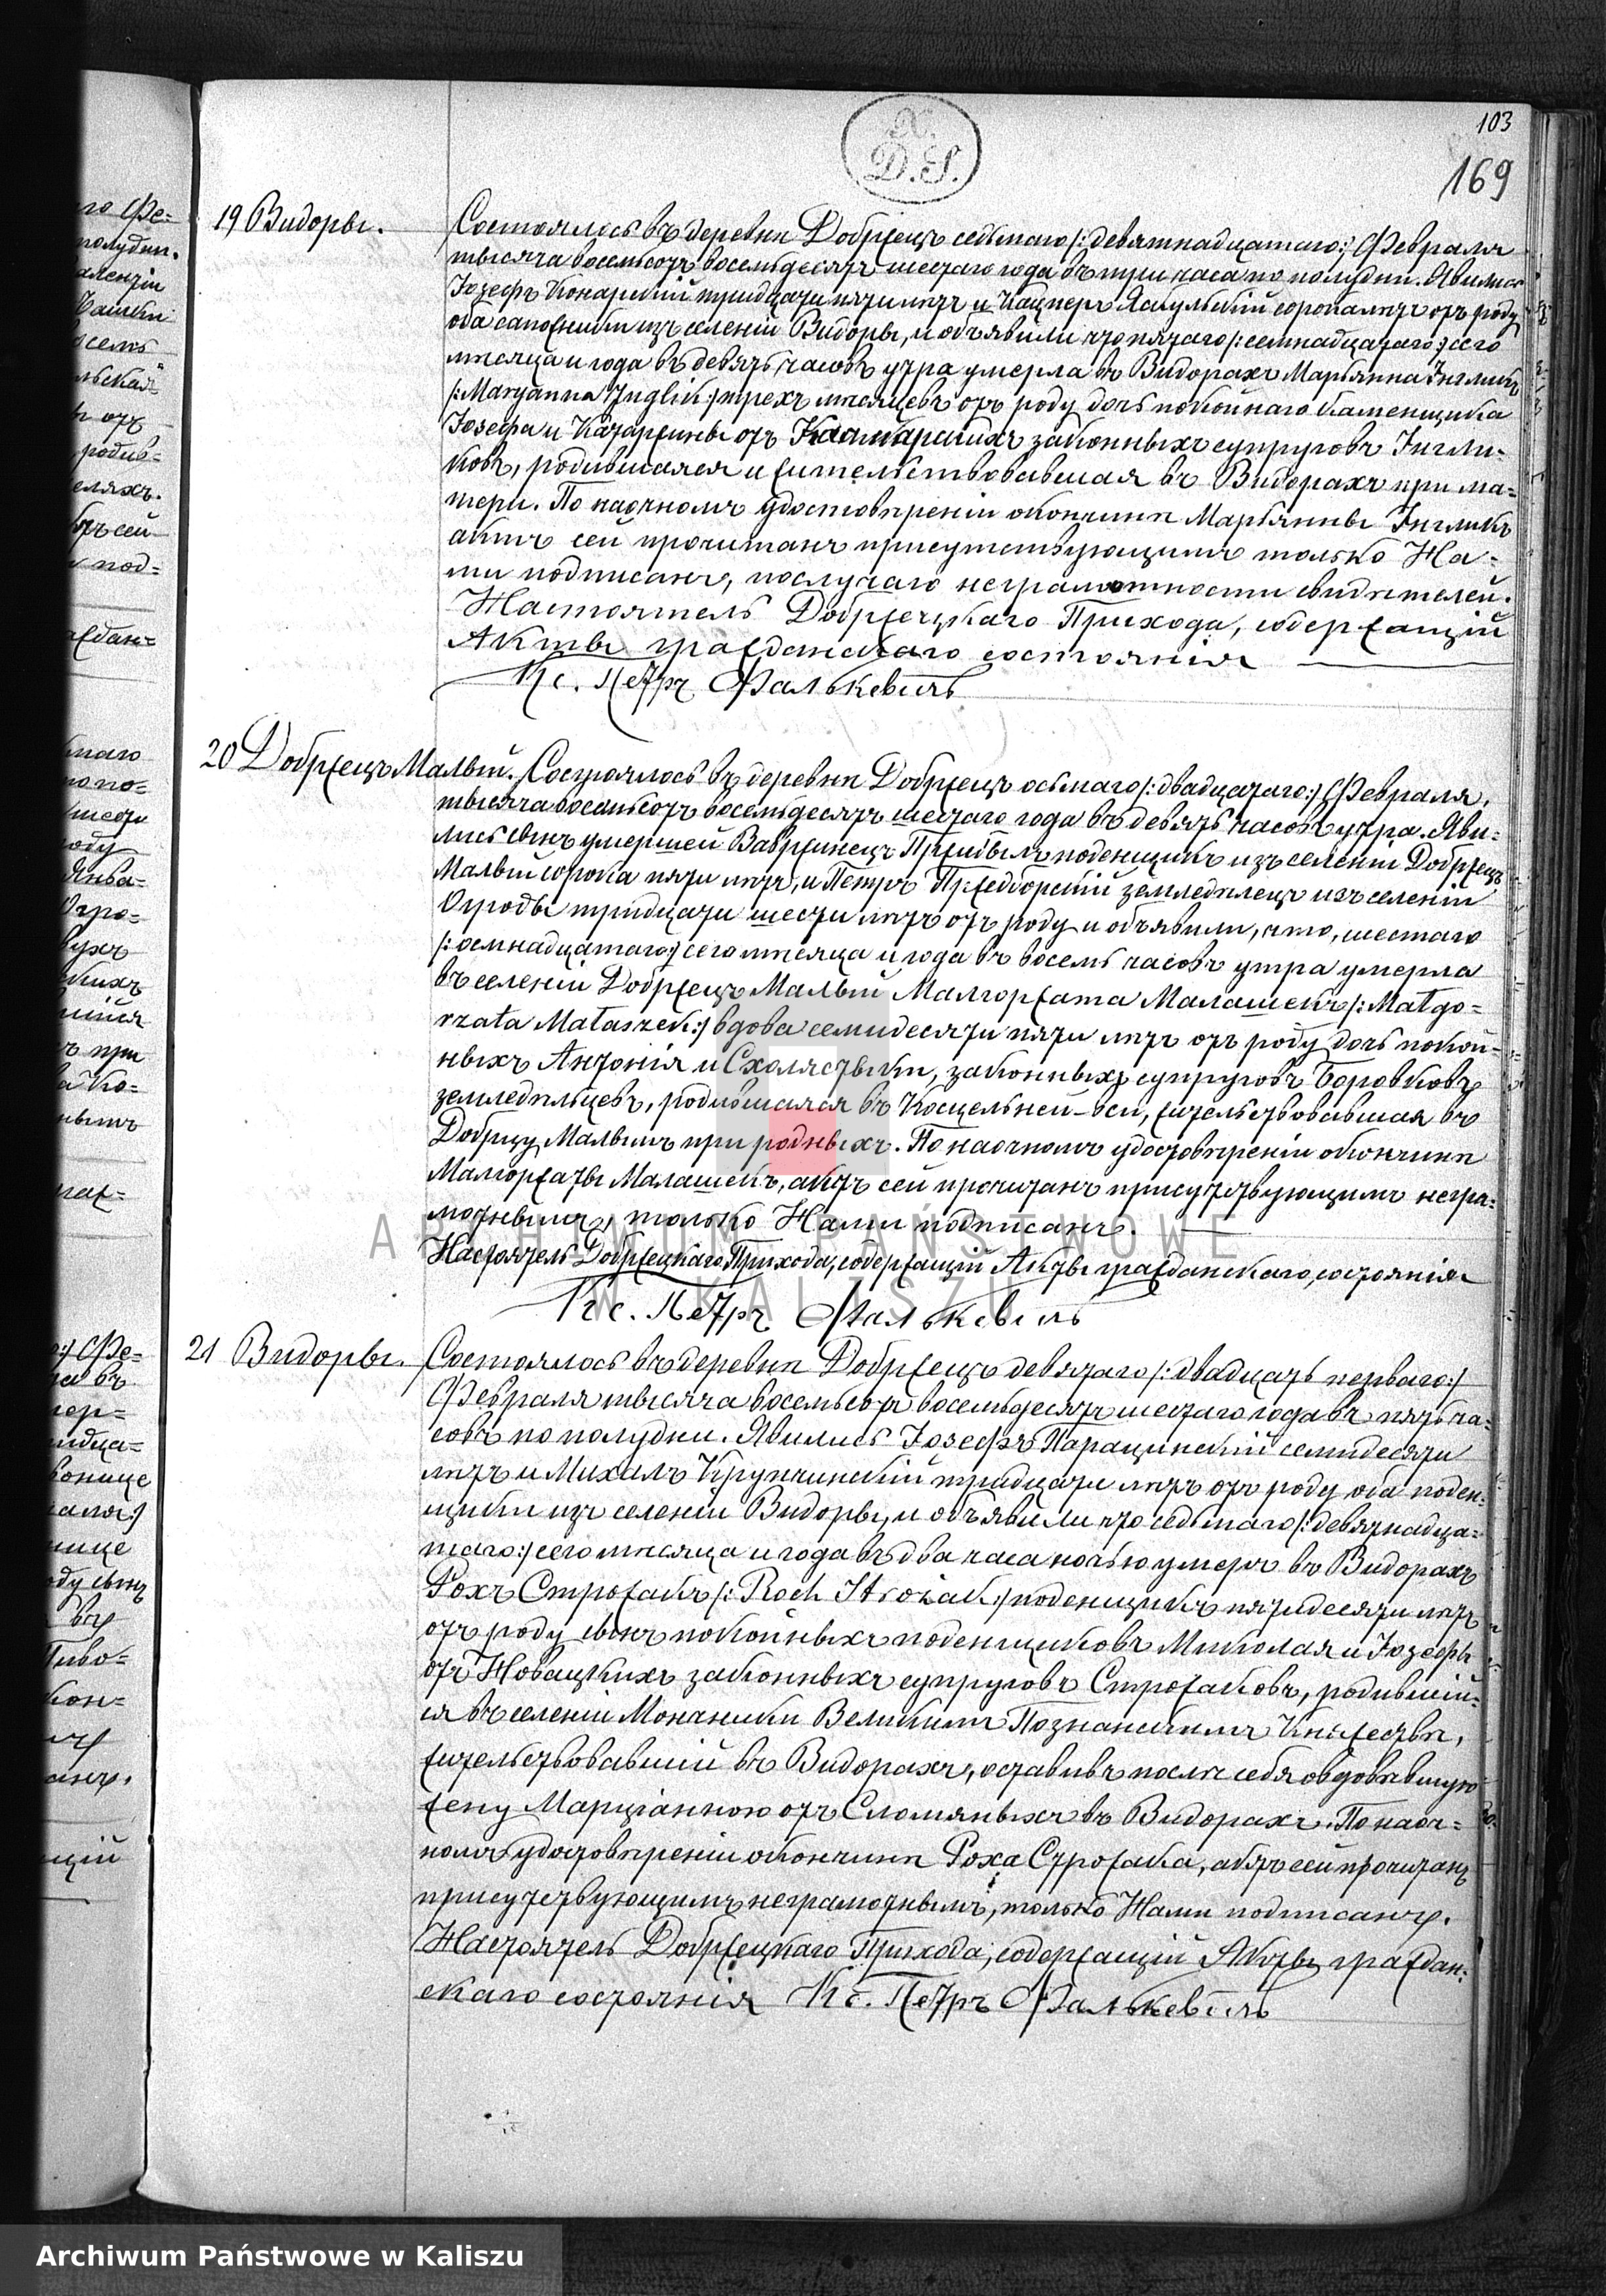 103
169
X.
D.S.
19 Видоры.
Состоялось въ деревни Добржецъ седьмаго /:девятнадцатаго:/ Февраля
тысяча восемьсотъ восемьдесятъ шестаго года въ три часа по полудни. Явились
Іозефъ Конарскій тридцати пяти лѣтъ и Кацперъ Яскульскій сорока лѣтъ отъ роду
оба сапожники изъ селеніи Видоры, и объявили что пятаго /:семнадцатаго:/ сего
мѣсяца и года въ девять часовъ утра умерла въ Видорахъ Марьянна Ингликъ
/:Maryanna Inglik:/ трехъ мѣсяцевъ отъ роду дочь покойнаго каменщика
Іозефа и Катаржины отъ законныхъ супруговъ Ингли-
ковъ, родившаяся и жительствовавшая въ Видорахъ при ма-
тери. По наочномъ удостовѣреніи окончинѣ Марьянны Ингликъ
актъ сей прочитанъ присутствующимъ только На-
ми подписанъ, послучаю неграмотности свидѣтелей.
Настоятель Добржецкаго Прихода, содержащій
Акты гражданскаго состоянія
Кс. Петръ Фалькевичъ
20 Добржецъ Малый. Состоялось въ деревни Добржецъ осьмаго /:двадцатаго:/ Февраля,
тысяча восемьсотъ восемьдесятъ шестаго года въ девять часовъ утра. Яви-
лись сынъ умершей Вавржинецъ поденщикъ изъ селеніи Добржецъ
Малый сорока пяти лѣтъ, и Петръ Пржедборскій земледѣлецъ изъ селеніи
Огроды тридцати шести лѣтъ отъ роду и объявили, что, шестаго
/:осмнадцатаго:/ сего мѣсяца и года въ восемь часовъ утра умерла
въ селеніи Добржецъ Малый Малгоржата Малашекъ /:Małgo-
rzata Małaszek:/ вдова семидесяти пяти лѣтъ отъ роду дочь покой-
ныхъ Антонія и Схолястыки, законныхъ супруговъ Боровковъ
земледѣльцевъ, родившаяся въ Косцельней-вси, жительствовавшая въ
Добрцу Малымъ при родныхъ. По наочномъ удостовѣреніи окончинѣ
Малгоржаты Малашекъ, актъ сей прочитанъ присутствующимъ негра-
мотнымъ, только Нами подписанъ.
Настоятель Добржецкаго Прихода, содержащій Акты гражданскаго состоянія
Кс. Петръ Фалькевичъ
21 Видоры.
Состоялось въ деревни Добржецъ девятаго /:двадцать перваго:/
Февраля тысяча восемьсотъ восемьдесятъ шестаго года въ пять ча-
совъ по полудни. Явились Іозефъ Парацинскій семидесяти
лѣтъ и Михалъ Крупчинскій тридцати лѣтъ отъ роду оба поден-
щики изъ селеніи Видоры, и объявили что седьмаго /:девятнадца-
таго:/ сего мѣсяца и года въ два часа ночью умеръ въ Видорахъ
Рохъ Строжакъ /:Roch Strożak:/ поденщикъ пятидесяти лѣтъ
отъ роду сынъ покойныхъ поденщиковъ Миколая и Іозефы
отъ Новацкихъ законныхъ супруговъ Строжаковъ, родившій-
ся въ селеніи Великимъ Познанскимъ Княжествѣ,
жительствовавшій въ Видорахъ, оставивъ послѣ себя овдовѣвшую
жену Марціанною отъ Сломяныхъ въ Видорахъ. По наоч-
номъ удостовѣреніи окончинѣ Роха Строжака, актъ сей прочитанъ
присутствующимъ неграмотнымъ, только Нами подписанъ.
Настоятель Добржецкаго Прихода, содержащій Акты граждан-
скаго состоянія Кс. Петръ Фалькевичъ
ARCHIWUM PAŃSTWOWE
W KALISZU
Archiwum Państwowe w Kaliszu